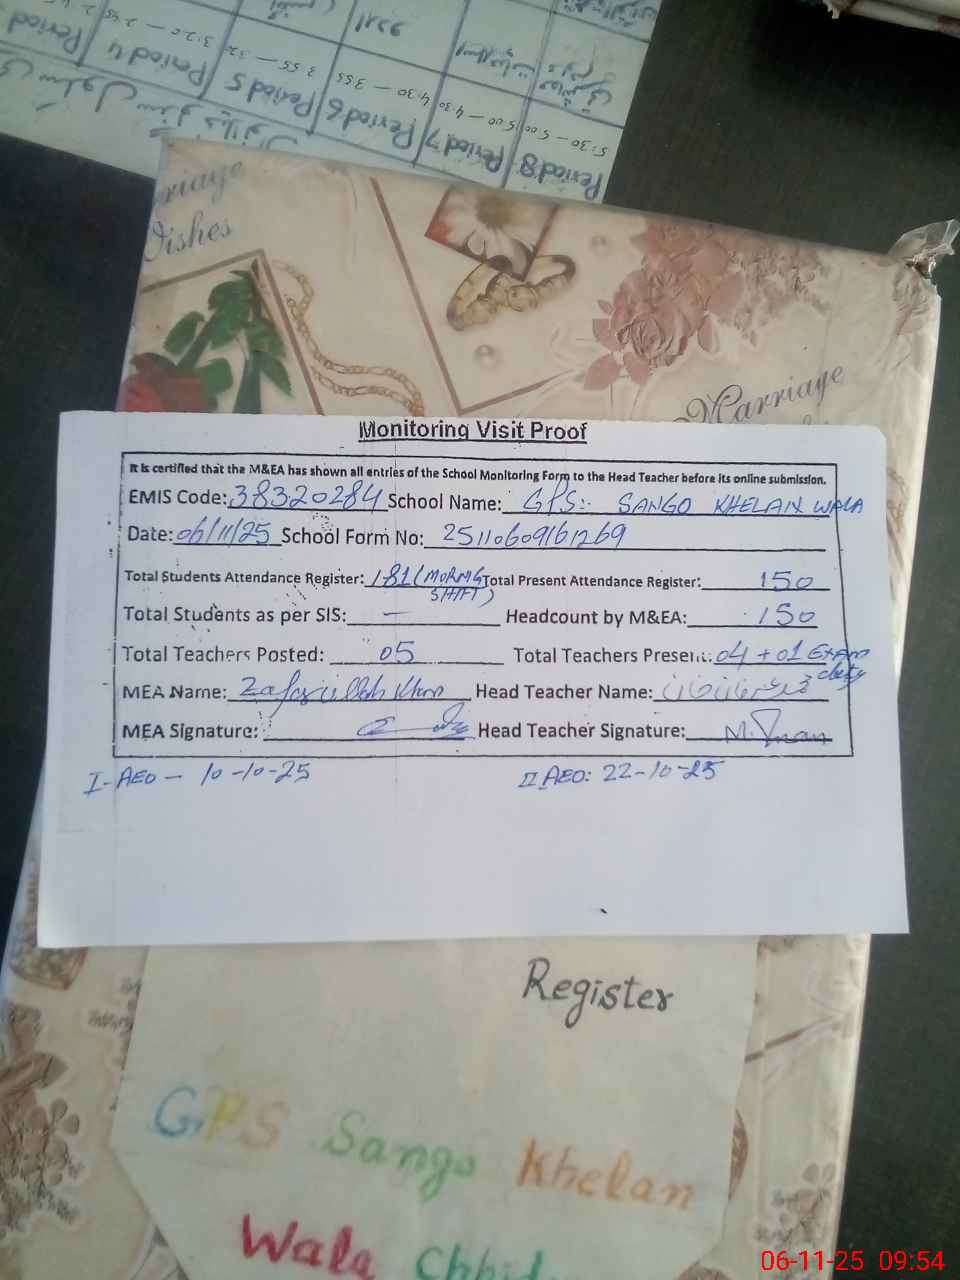 Period 8 Period 7 Period 6 Period 5 Period 4 Period
5:30 — 5:00 5:00 — 4:30 4:30 — 3:55 3:55 — 3:20 — 2:45
اردو
Marriage
Wishes
Marriage
Monitoring Visit Proof
It is certified that the M&EA has shown all entries of the School Monitoring Form to the Head Teacher before its online submission.
EMIS Code: 38320284 School Name: GPS:- SANGO KHELAN WALA
Date: 06/11/25 School Form No: 25110609161269
Total Students Attendance Register: 181 (MORNG SHIFT) Total Present Attendance Register: 150
Total Students as per SIS: — Headcount by M&EA: 150
Total Teachers Posted: 05 Total Teachers Present: 04 + 01 Exam duty
MEA Name: Zafarullah Khan Head Teacher Name:
MEA Signature: Head Teacher Signature:
I- AEO — 10-10-25 II AEO: 22-10-25
Register
GPS Sango Khelan
Wala
06-11-25 09:54